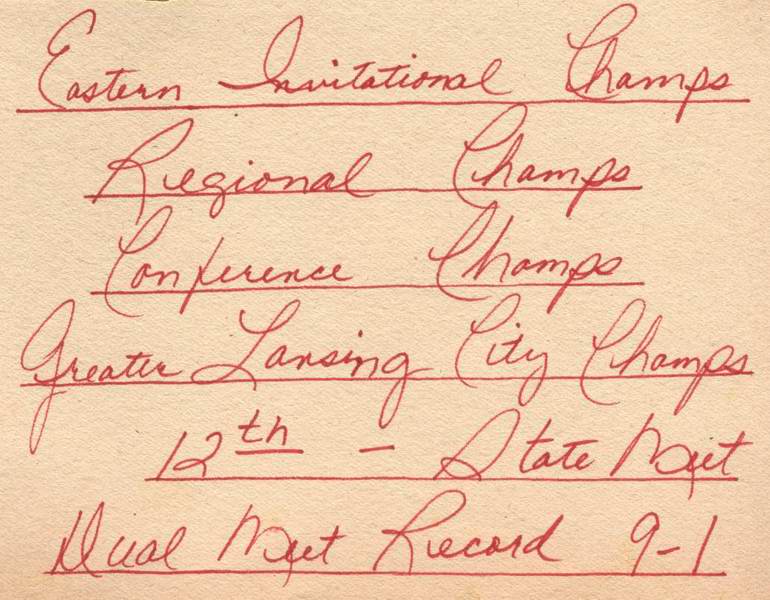 Eastern Invitational Champs
Regional Champs
Conference Champs
Greater Lansing City Champs
12th - State Meet
Dual Meet Record 9-1